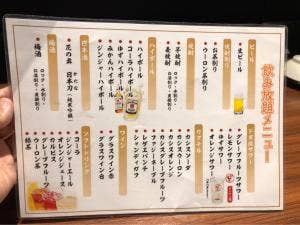 飲み放題メニュー
ビール
・生ビール
焼酎割り
・お茶割り
・ウーロン茶割り
焼酎
・芋焼酎
・麦焼酎
ハイボール
・コーラハイボール
・ゆずハイボール
・みかんハイボール
・ジンジャーハイボール
日本酒
・花の舞
・日本刀
梅酒
・梅酒
ロック・水割り
お湯割り・炭酸割り
・グレープフルーツサワー
・レモンサワー
カクテル
・カシスソーダ
・カシスウーロン
・カシスオレンジ
・カシスグレープフルーツ
・レゲエパンチ
・シャンディガフ
ワイン
・グラスワイン赤
・グラスワイン白
ソフトドリンク
・コーラ
・ジンジャーエール
・オレンジジュース
・カルピス
・グレープフルーツ
・ウーロン茶
・緑茶